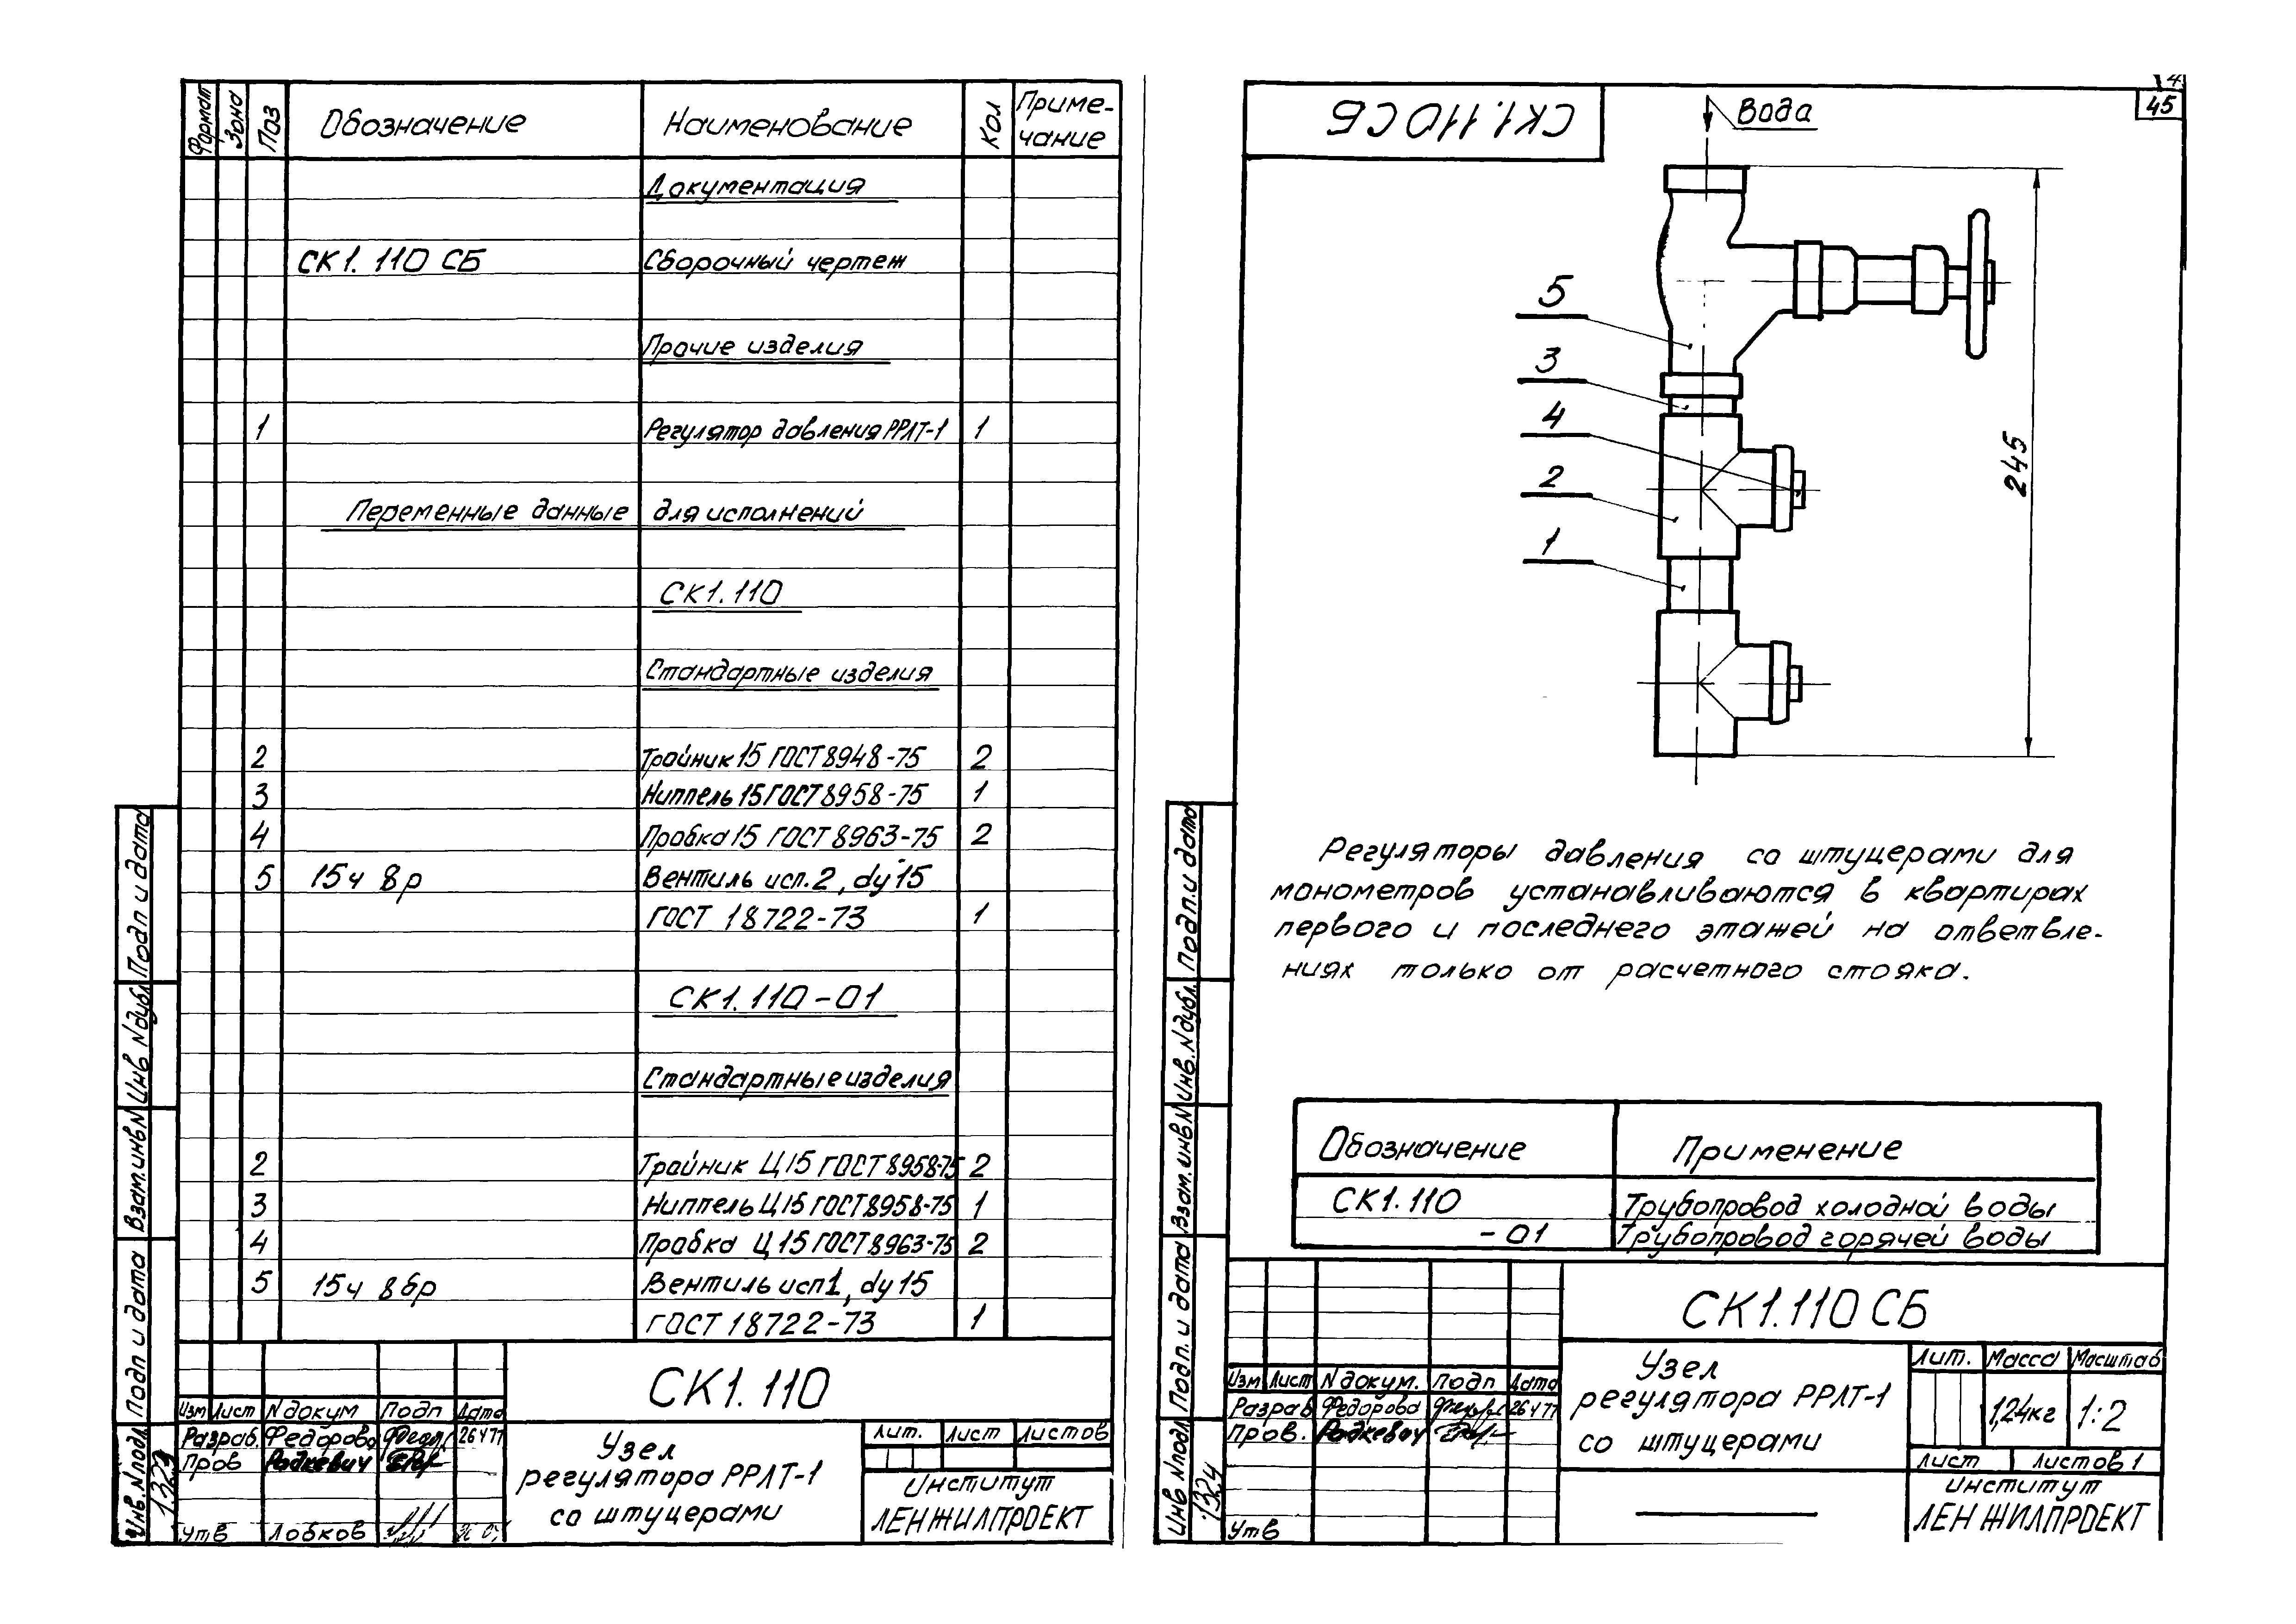 Формат Зона Поз Обозначение Наименование Кол Приме-
чание
Документация
СК1. 110 СБ Сборочный чертеж
Прочие изделия
1 Регулятор давления РРЛТ-1 1
Переменные данные для исполнений
СК1.110
Стандартные изделия
2 Тройник 15 ГОСТ 8948-75 2
3 Ниппель 15 ГОСТ 8958-75 1
4 Пробка 15 ГОСТ 8963-75 2
5 15ч 8р Вентиль исп.2, dy 15
ГОСТ 18722-73 1
СК1.110-01
Стандартные изделия
2 Тройник Ц15 ГОСТ 8958-75 2
3 Ниппель Ц15 ГОСТ 8958-75 1
4 Пробка Ц15 ГОСТ 8963-75 2
5 15ч 8бр Вентиль исп1, dy 15
ГОСТ 18722-73 1
Подп и дата
Инв Nдубл.
Взам.инвN
Подп и дата
Инв.Nподл
СК1.110
Изм Лист N докум Подп Дата
Разраб. Федорова 26 4 77
Пров Радкевич
Утв Лобков
Узел
регулятора РРЛТ-1
со штуцерами
Лит. Лист Листов
Институт
ЛЕНЖИЛПРОЕКТ
СК1.110СБ
45
Вода
5
3
4
2
1
245
Регуляторы давления со штуцерами для
монометров устанавливаются в квартирах
первого и последнего этажей на ответвле-
ниях только от расчетного стояка.
Обозначение Применение
СК1.110 Трубопровод холодной воды
-01 Трубопровод горячей воды
Подп.и дата
Инв.Nдубл.
Взам.инвN
Подп.и дата
Инв Nподл
1324
СК1.110СБ
Изм Лист N докум. Подп Дата
Разраб Федорова 26 4 77
Пров. Радкевич
Утв
Узел
регулятора РРЛТ-1
со штуцерами
Лит. Масса Масштаб
1,24кг 1:2
Лист Листов 1
Институт
ЛЕНЖИЛПРОЕКТ